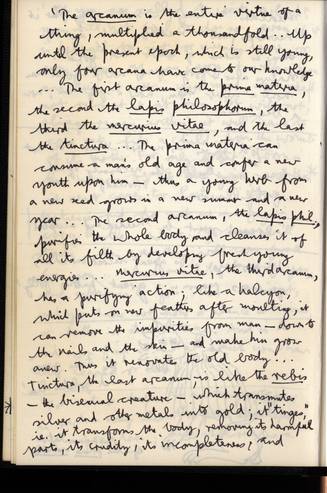 'The arcanum is the entire virtue of a
thing, multiplied a thousandfold... Up
until the present epoch, which is still young,
only four arcana have come to our knowledge
... The first arcanum is the prima materia,
the second the lapis philosophorum, the
third the mercurius vitae, and the last
the tinctura ... The prima materia can
consume a man's old age and confer a new
youth upon him — thus a young herb from
a new seed grows in a new summer and a new
year ... The second arcanum, the lapis phil,
purifies the whole body and cleanses it of
all its filth by developing fresh young
energies ... Mercurius vitae, the third arcanum,
has a purifying action; like a halcyon,
which puts on new feathers after moulting, it
can remove the impurities from man — down to
the nails and the skin — and make him grow
anew. Thus it renovates the old body ...
Tinctura, the last arcanum, is like the rebis
— the bisexual creature — which transmutes
silver and other metals into gold; it "tinges,"
i.e. it transforms the body, removing its harmful
parts, its crudity, its incompleteness, and